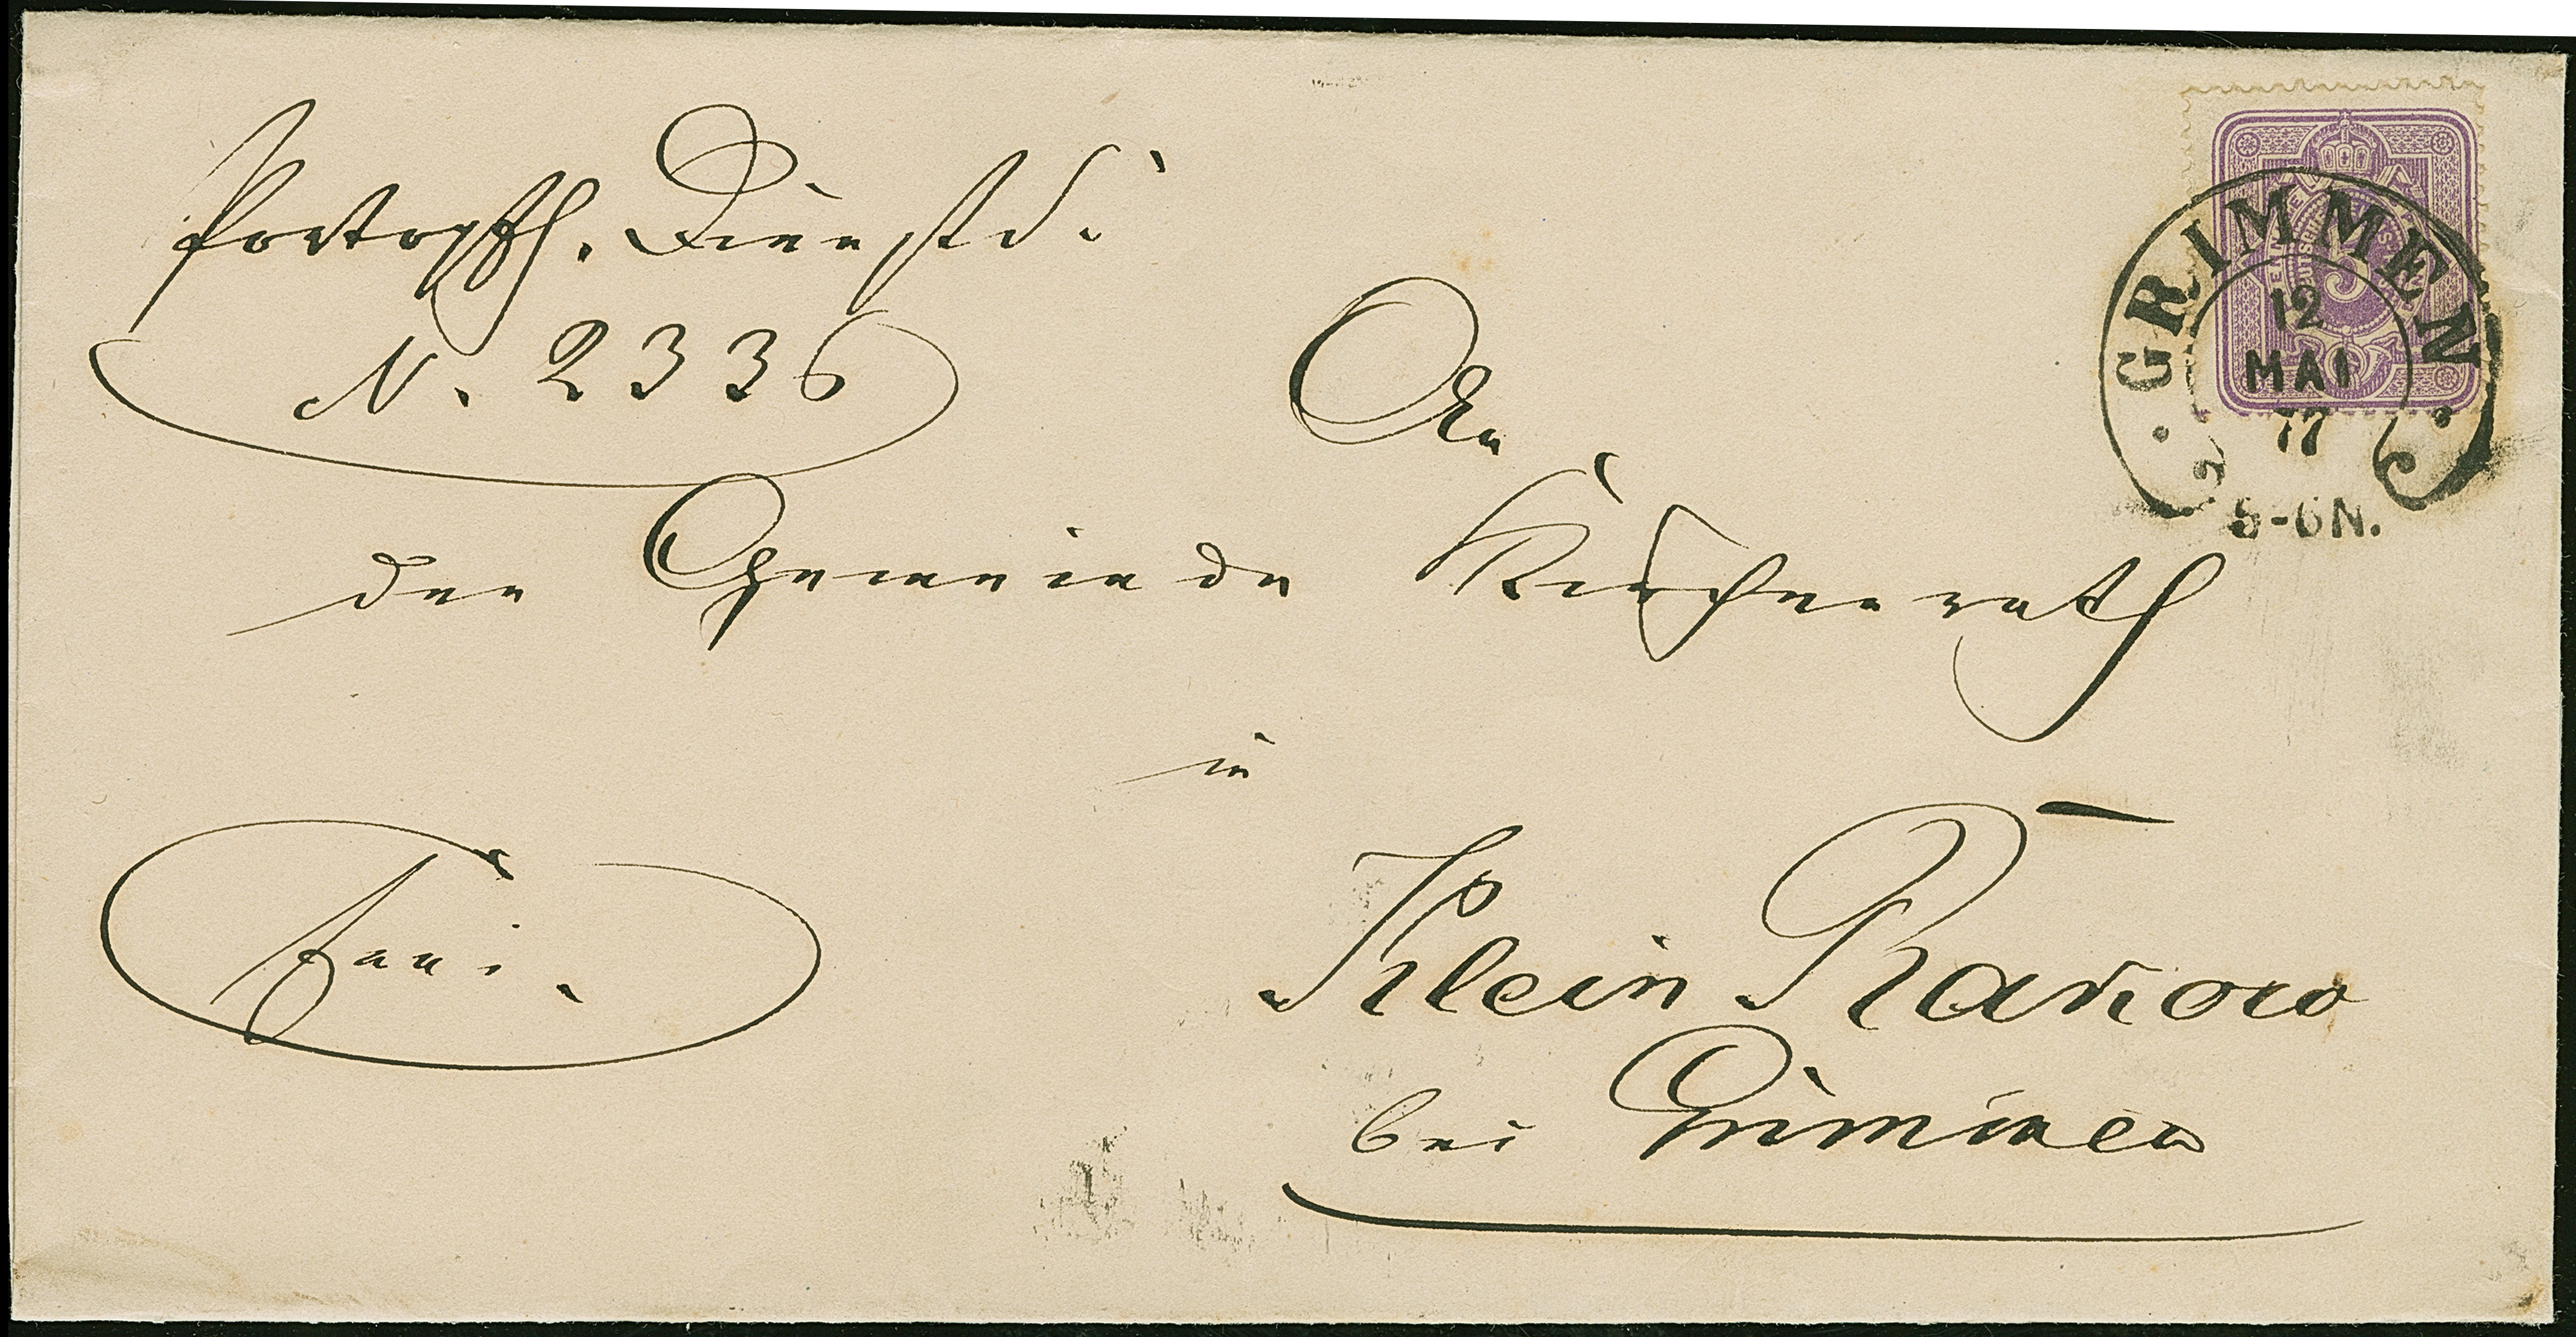 Portopfl. Diensts.
N. 2336
An
den Gemeinde Kirchenrath
in
frei.
Klein Rakow
bei Grimmen
GRIMMEN
12
MAI
77
5-6N.
5